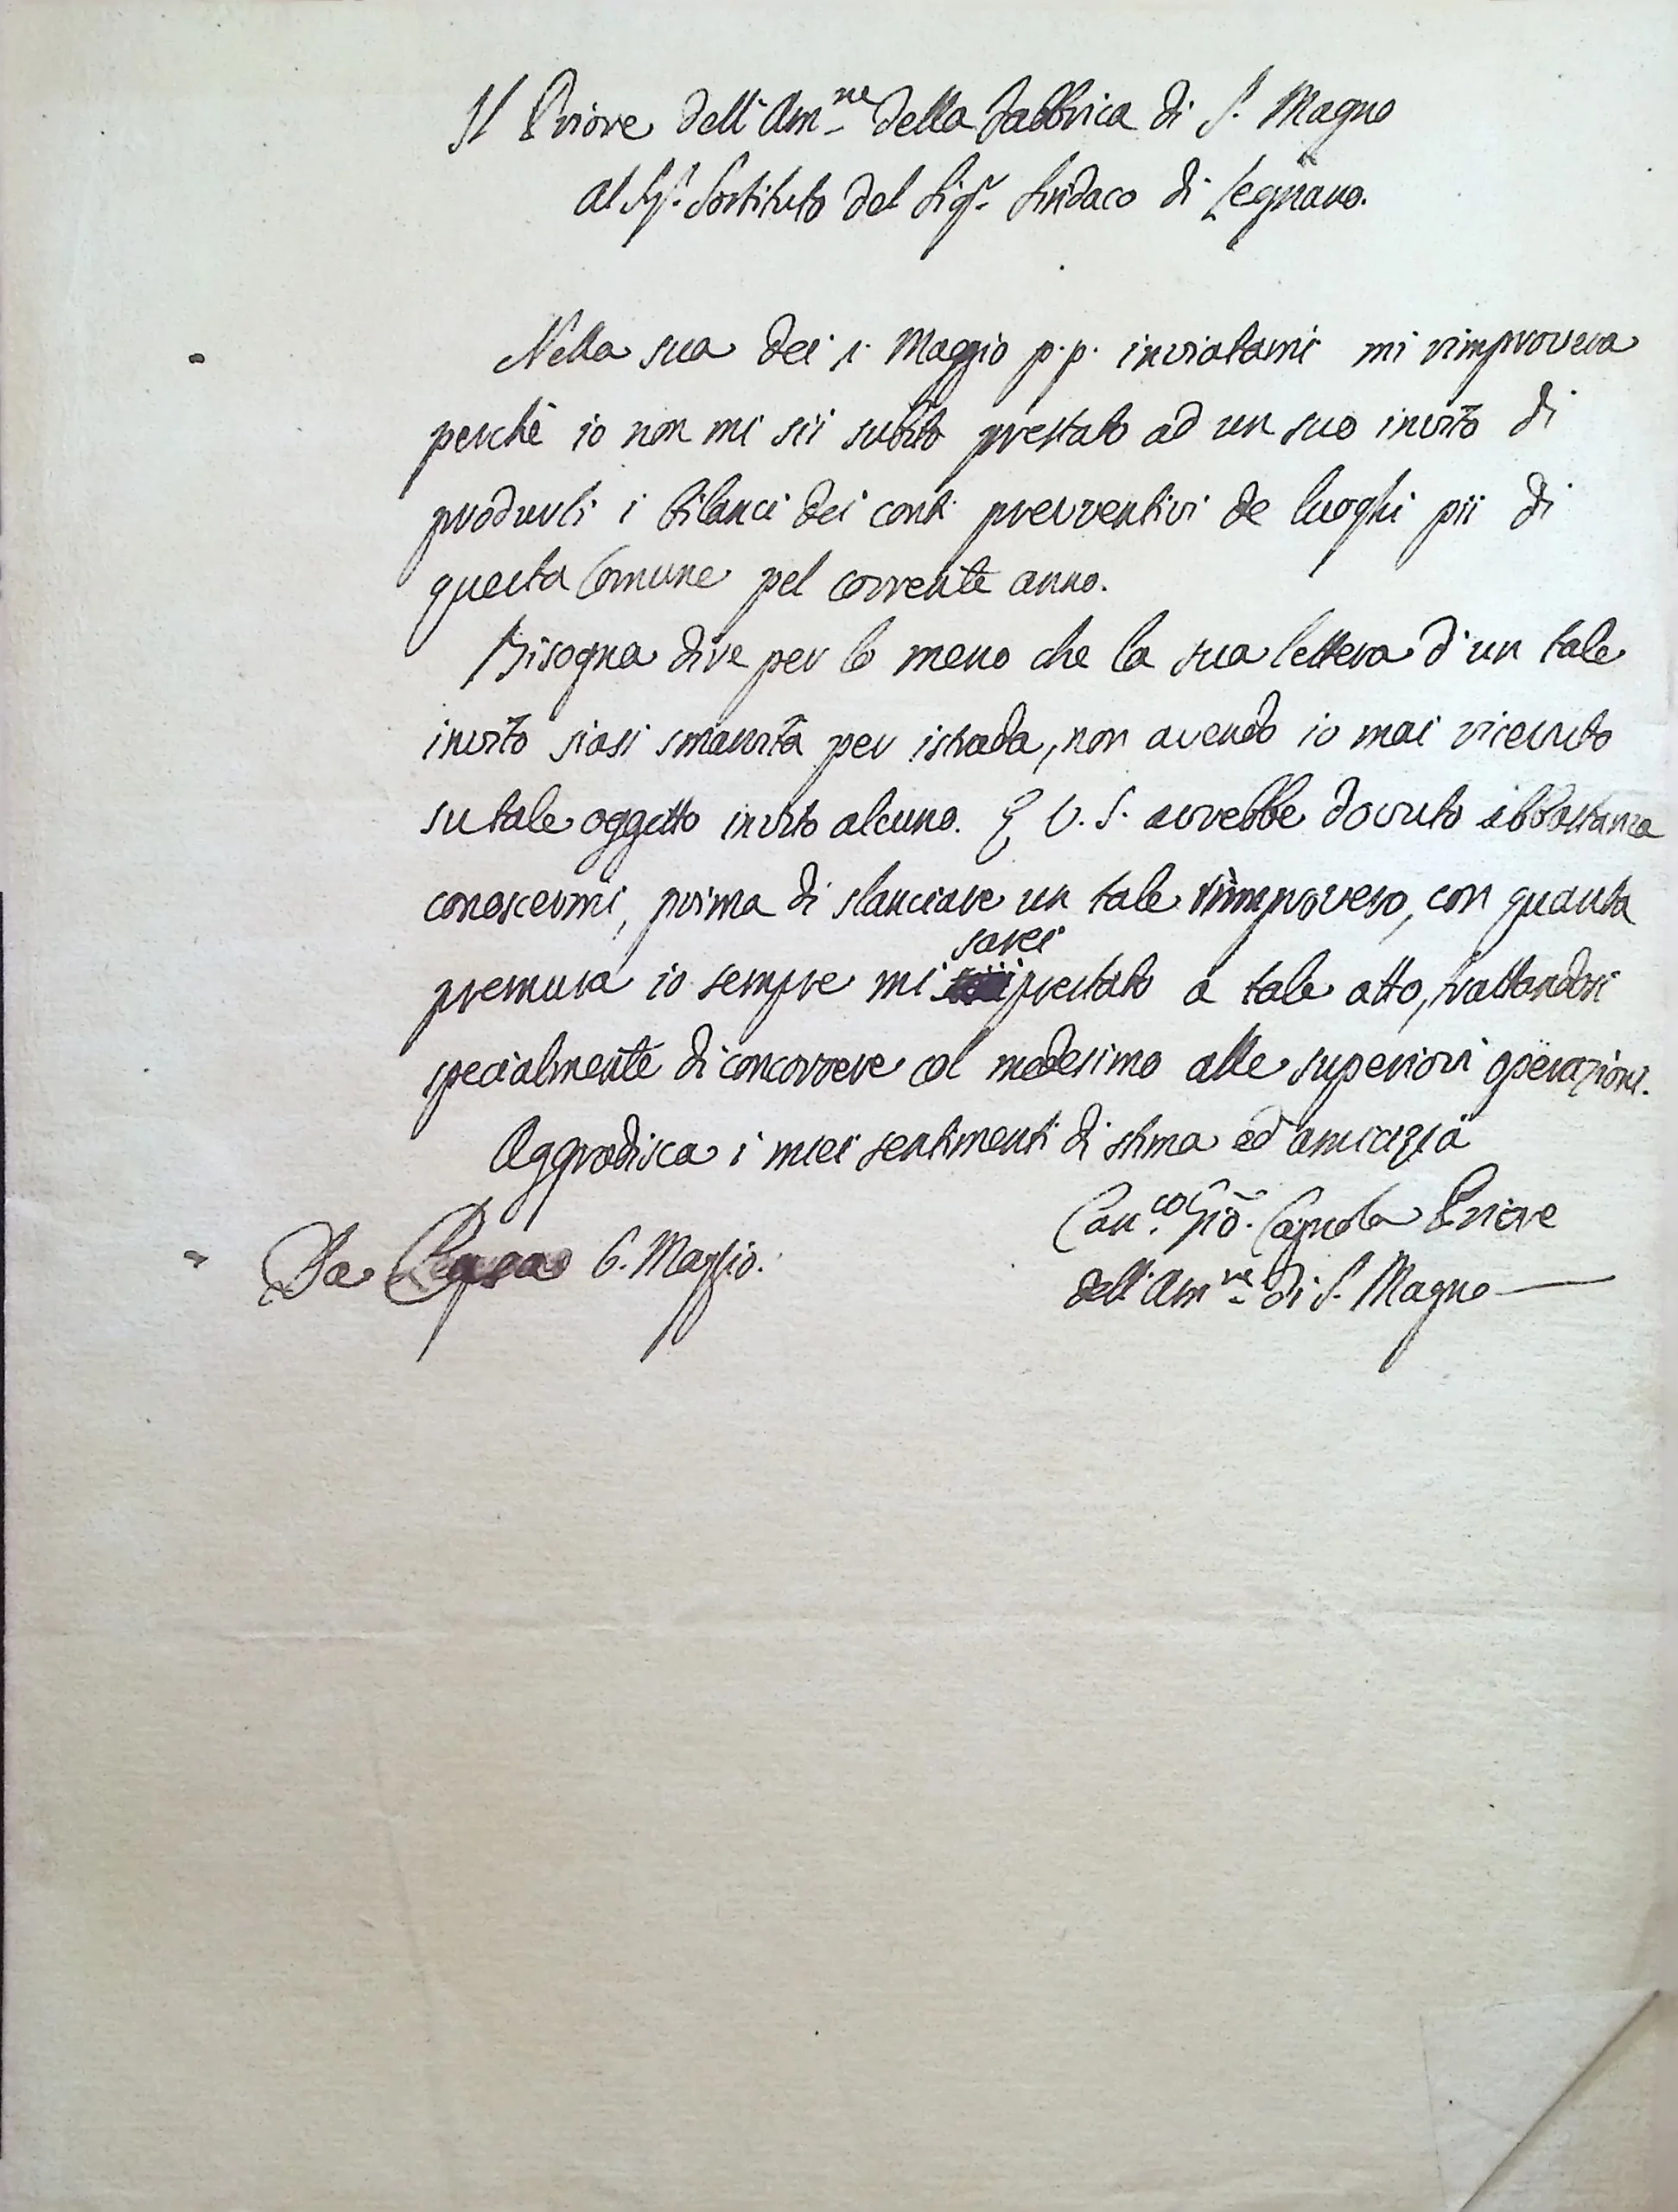 Il Priore dell'Am.ne della Fabbrica di S. Magno
Al Sig.r Sostituto del Sig.r Sindaco di Legnano.
Nella sua dei 1. Maggio p.p. inviatami mi rimprovera
perchè io non mi sii subito prestato ad un suo invito di
produrli i bilanci dei conti prevventivi de luoghi pii di
questa Comune pel corrente anno.
Bisogna dire per lo meno che la sua lettera d'un tale
invito siasi smarrita per istrada, non avendo io mai ricevuto
su tale oggetto invito alcuno. E V. S. avrebbe dovuto abbastanza
conoscermi, prima di slanciare un tale rimprovero, con quanta
premura io sempre mi sarei prestato a tale atto, trattandosi
specialmente di concorrere col medesimo alle superiori operazioni.
Aggradisca i miei sentimenti di stima ed amicizia
Can.co Gio. Cagnola Priore
Da Legnano 6. Maggio.
dell'Am.ne di S. Magno